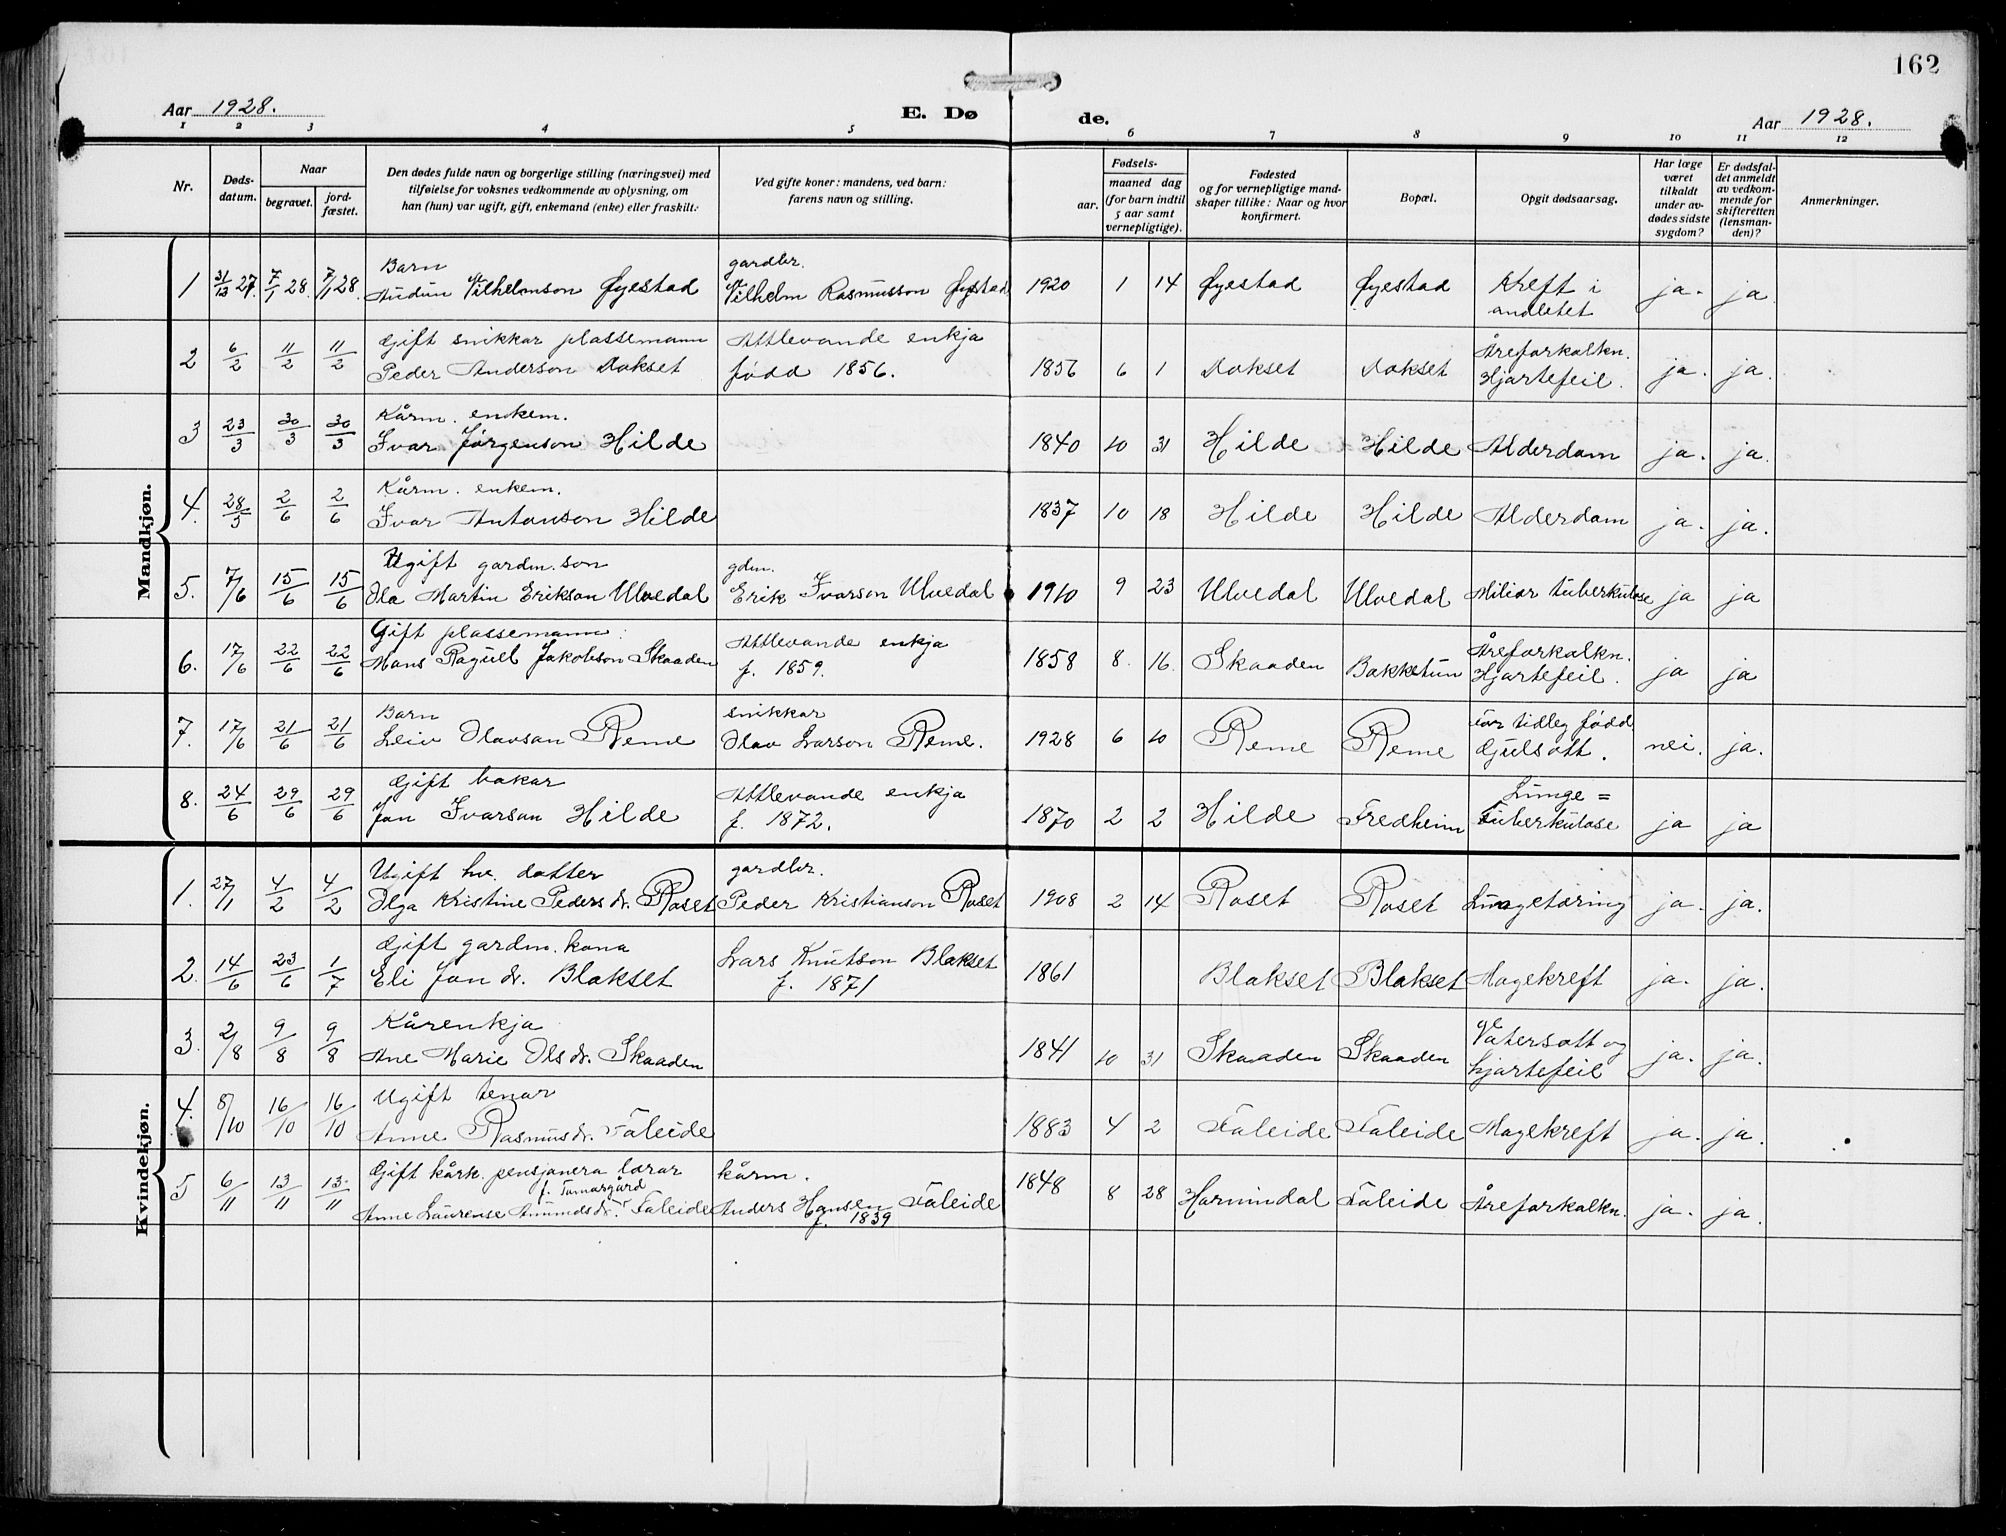 162
Aar 1928.
E. Dø
de.
Aar 1928.
1 2 3 4 5 6 7 8 9 10 11 12
Nr.
Døds-
datum.
Naar
begravet.
jord-
fæstet.
Den dødes fulde navn og borgerlige stilling (næringsvei) med
tilføielse for voksnes vedkommende av oplysning, om
han (hun) var ugift, gift, enkemand (enke) eller fraskilt.
Ved gifte koner: mandens, ved barn:
farens navn og stilling.
Fødsels-
aar.
maaned dag
(for barn indtil
5 aar samt
vernepligtige).
Fødested
og for vernepligtige mand-
skaper tillike: Naar og hvor
konfirmert.
Bopæl.
Opgit dødsaarsag.
Har læge
været
tilkaldt
under av-
dødes sidste
sygdom?
Er dødsfal-
det anmeldt
av vedkom-
mende for
skifteretten
(lensman-
den)?
Anmerkninger.
Mandkjøn.
Barn gardbr.
1 31/12 27. 7/1 28. 7/1 28. Audun Vilhelmson Øyestad Vilhelm Rasmusson Øyestad 1920 1 14 Øyestad Øyestad Kreft i
andletet ja. ja
Gift snikkar plassemann Attlevande enkja Åreforkalkn.
2 6/2 11/2 11/2 Peder Anderson Dokset fødd 1856. 1856 6 1 Dokset Dokset Hjartefeil. ja. ja.
Kårm. enkem.
3 23/3 30/3 30/3 Ivar Jørgenson Hilde 1840 10 31 Hilde Hilde Alderdom ja. ja.
Kårm. enkem.
4. 28/5 2/6 2/6 Ivar Antonson Hilde 1837 10 18 Hilde Hilde Alderdom ja. ja.
Ugift gardm. son gdm.
5. 7/6 15/6 15/6 Ola Martin Erikson Ulvedal Erik Ivarson Ulvedal 1910 9 23 Ulvedal Ulvedal Miliær tuberkulose ja ja
Gift plassemann. Attlevande enkja Åreforkalkn.
6. 17/6 22/6 22/6 Hans Raguel Jakobson Skaaden f. 1859. 1858 8. 16. Skaaden Bakketun Hjartefeil. ja ja
Barn snikkar for tidleg fødd
7. 17/6 21/6 21/6 Leiv Olavson Reme Olav Larson Reme. 1928 6 10 Reme Reme Gulsott. nei. ja.
Gift bakar Attlevande enkja Lunge=
8. 24/6 29/6 29/6 Jon Ivarson Hilde f. 1872. 1870 2 2 Hilde Fredheim Tuberkulose ja ja
Kvindekjøn.
Ugift hv. dotter gardbr.
1. 27/1 4/2 4/2 Olga Kristine Peders dr. Roset Peder Kristianson Roset 1908 2 14 Roset Roset Lungetæring ja. ja.
Gift gardm. kona Lars Knutson Blakset
2. 14/6 23/6 1/7 Eli Jon dr. Blakset f. 1871 1861 Blakset Blakset Magekreft ja. ja.
Kårenkja Vatersott og
3. 2/8 9/8 9/8 Ane Marie Ols dr. Skaaden 1841 10 31 Skaaden Skaaden hjartefeil ja. ja.
Ugift tenar
4. 8/10 16/10 16/10 Anne Rasmus dr. Faleide 1883 4 2 Faleide Faleide Magekreft ja. ja.
Gift kårk. pensjonera lærar kårm.
f. Tomasgård
5 6/11 13/11 13/11 Anne Laurense Amunds dr. Faleide Anders Hansen Faleide 1848 8 28 Hornindal Faleide Åreforkalkn. ja. ja.
f. 1839